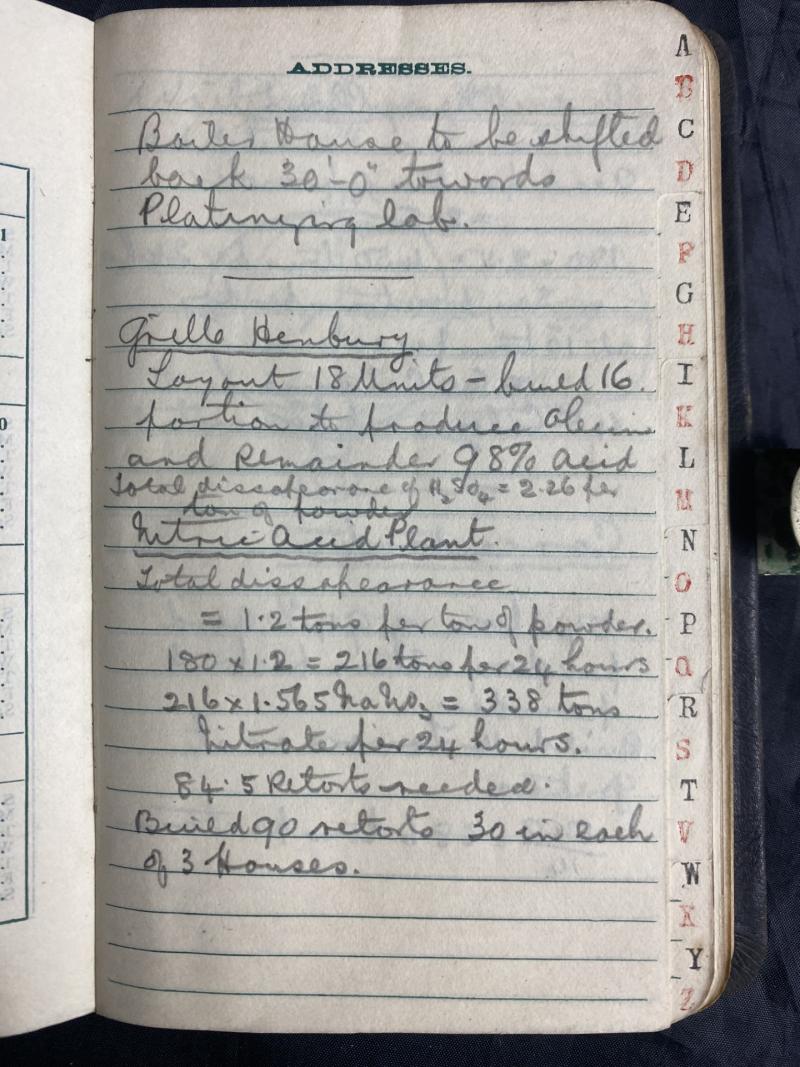 ADDRESSES.
Boiler House to be shifted
back 30'-0" towards
Platinizing lab.
Grillo Henbury
Layout 18 Units - build 16.
portion to produce Oleum
and Remainder 98% acid
Total dissapearance of H2SO4 = 2.26 per
ton of powder
Nitric Acid Plant.
Total dissapearance
= 1.2 tons per ton of powder.
180 x 1.2 = 216 tons per 24 hours
216 x 1.565 NaNO3 = 338 tons
Nitrate per 24 hours.
84.5 Retorts needed.
Build 90 retorts 30 in each
of 3 Houses.
A
B
C
D
E
F
G
H
I
K
L
M
N
O
P
Q
R
S
T
V
W
X
Y
Z